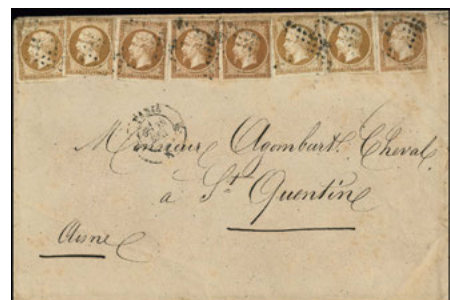 PARIS
Monsieur Agombart Cheval
à St Quentin
Aisne